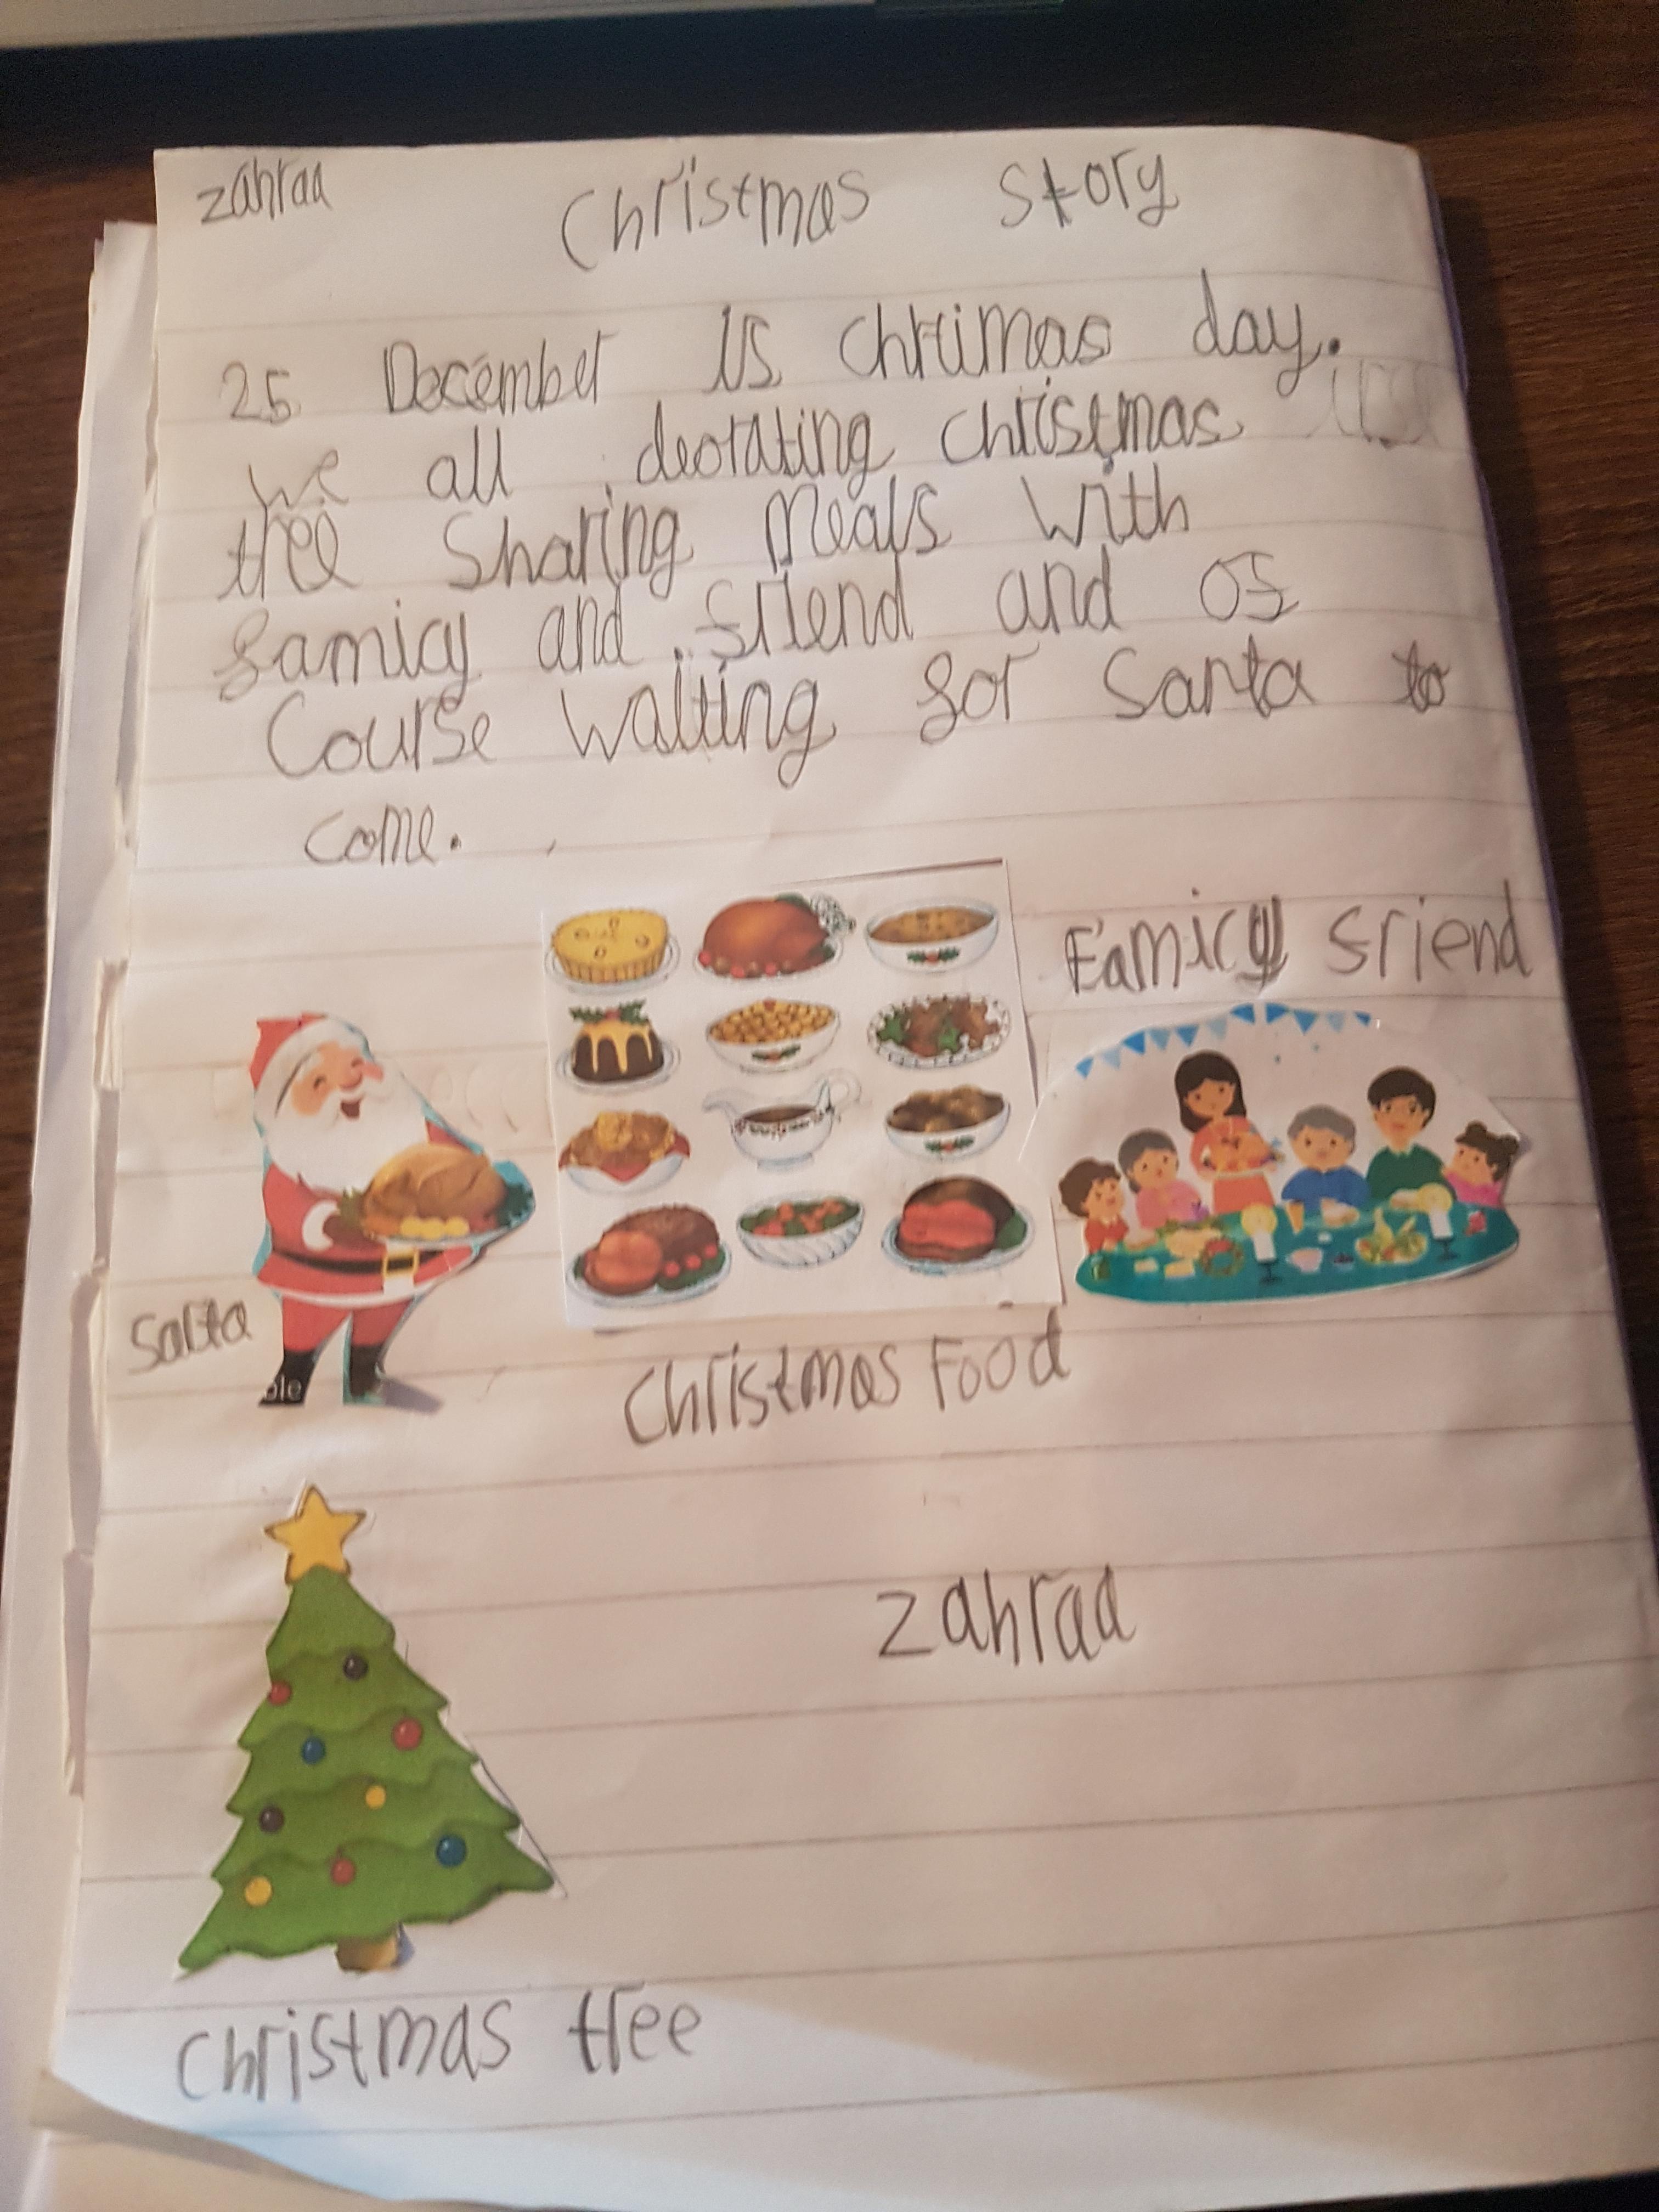 zahraa
Christmas story
25 December is chrtimas day.
we all deorating christmas
tree Sharing Meals with
family and friend and of
Course waiting for Santa to
come.
Family friend
Santa
ole
Christmas Food
zahraa
christmas tree